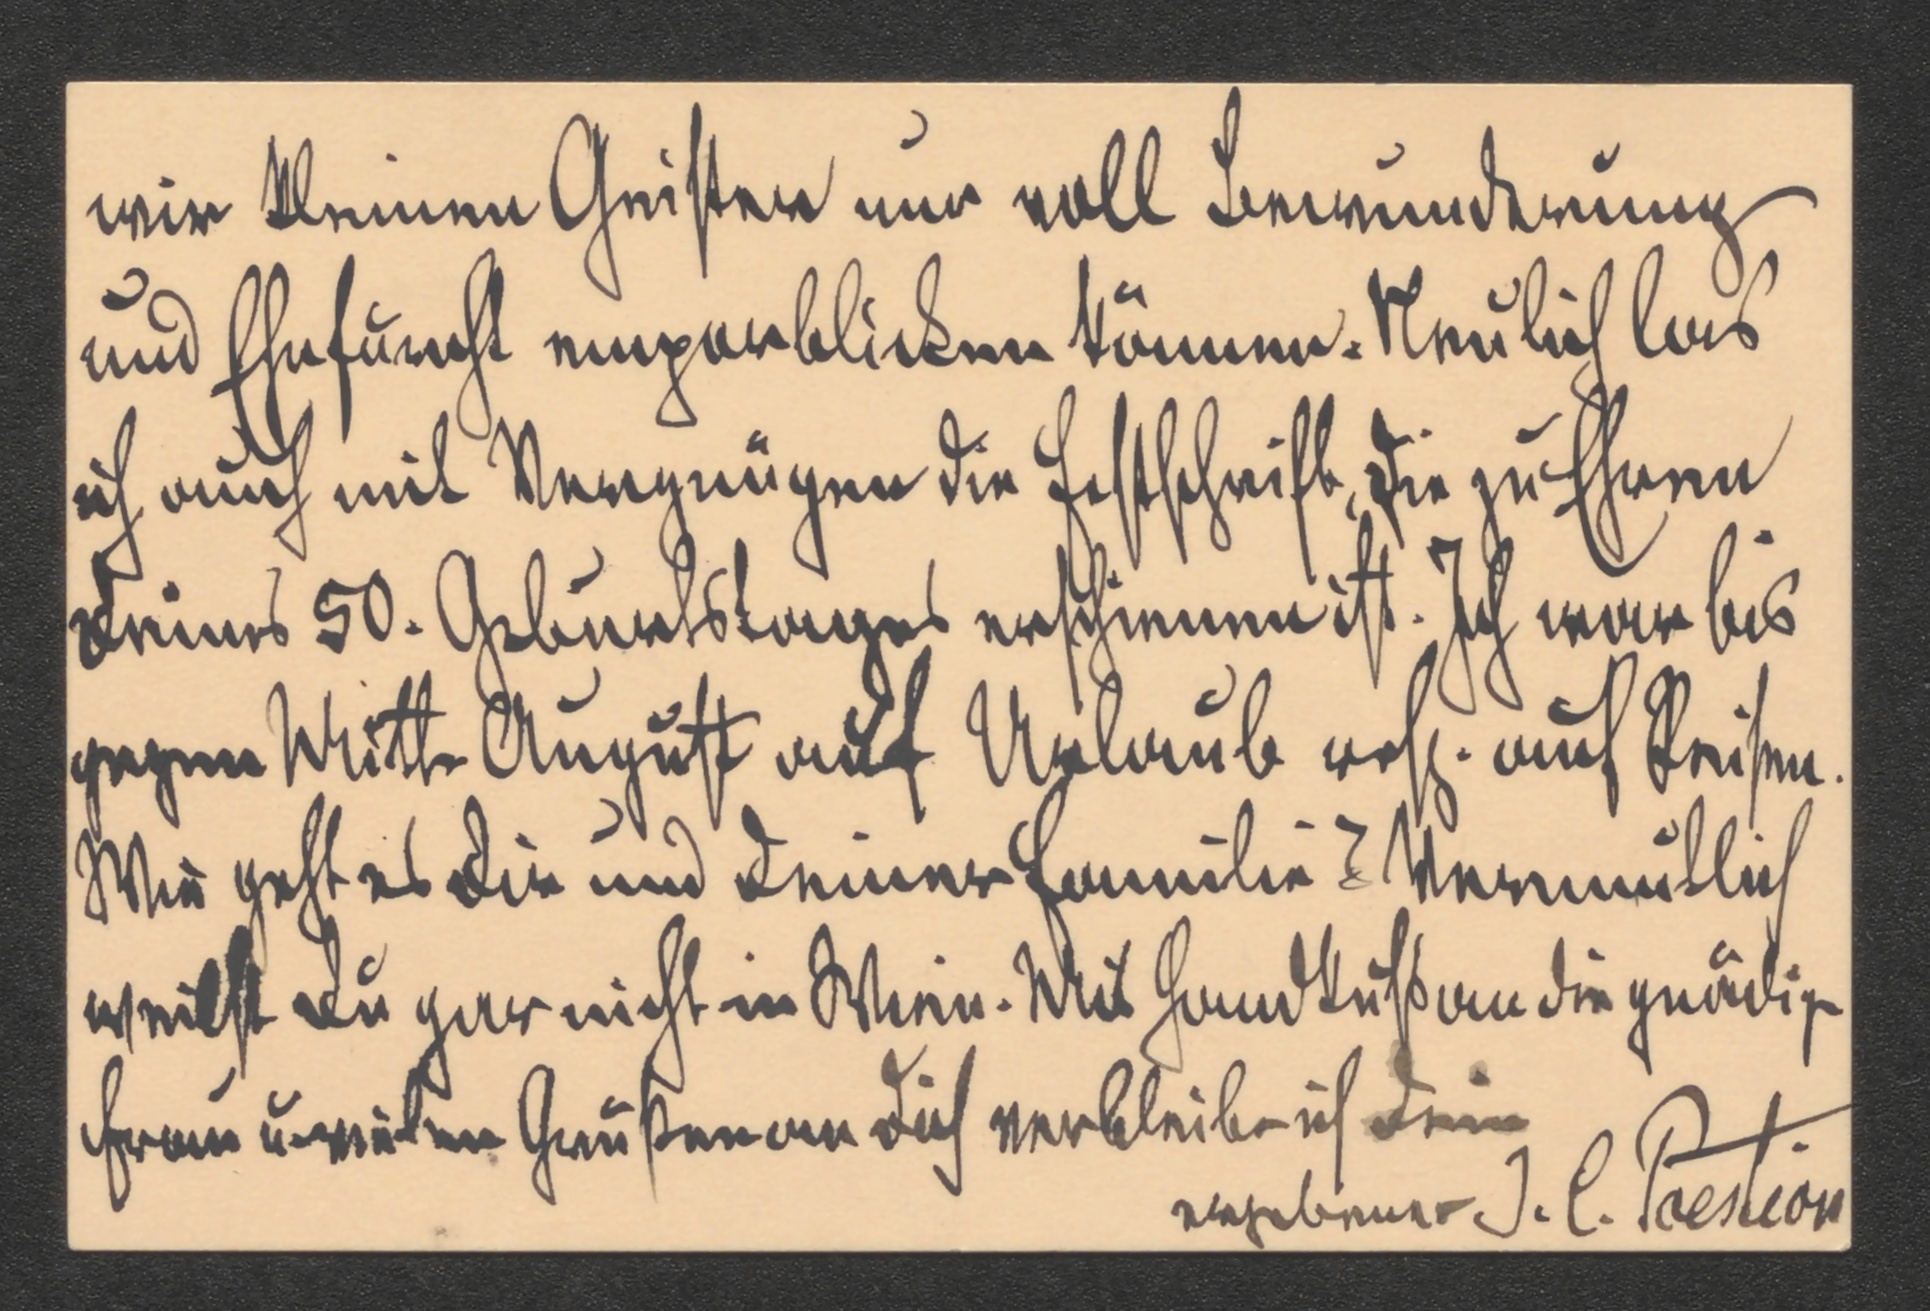 wir kleinen Geister nur voll Bewunderung
und Ehrfurcht emporblicken können. Neulich las
ich auch mit Vergnügen die Festschrift, die zu Ehren
Deines 50. Geburtstages erschienen ist. Ich war bis
gegen Mitte August auf Urlaub resp. auf Reisen.
Wie geht es Dir und Deiner Familie? Vermutlich
weilst Du gar nicht in Wien. Mit Handkuß an die gnädige
Frau u. vielen Grüßen an Dich verbleibe ich Dein
ergebener J. C. Poestion